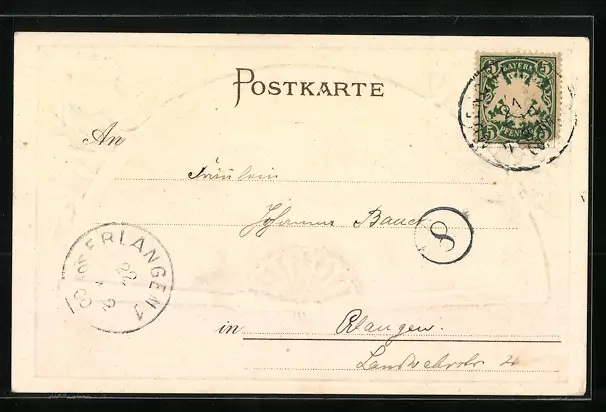 POSTKARTE
5 BAYERN 5
5 PFENNIG 5
An
Fräulein
Johanna Bauer
8
ERLANGEN 1
22
in Erlangen.
Landwehrstr. 4